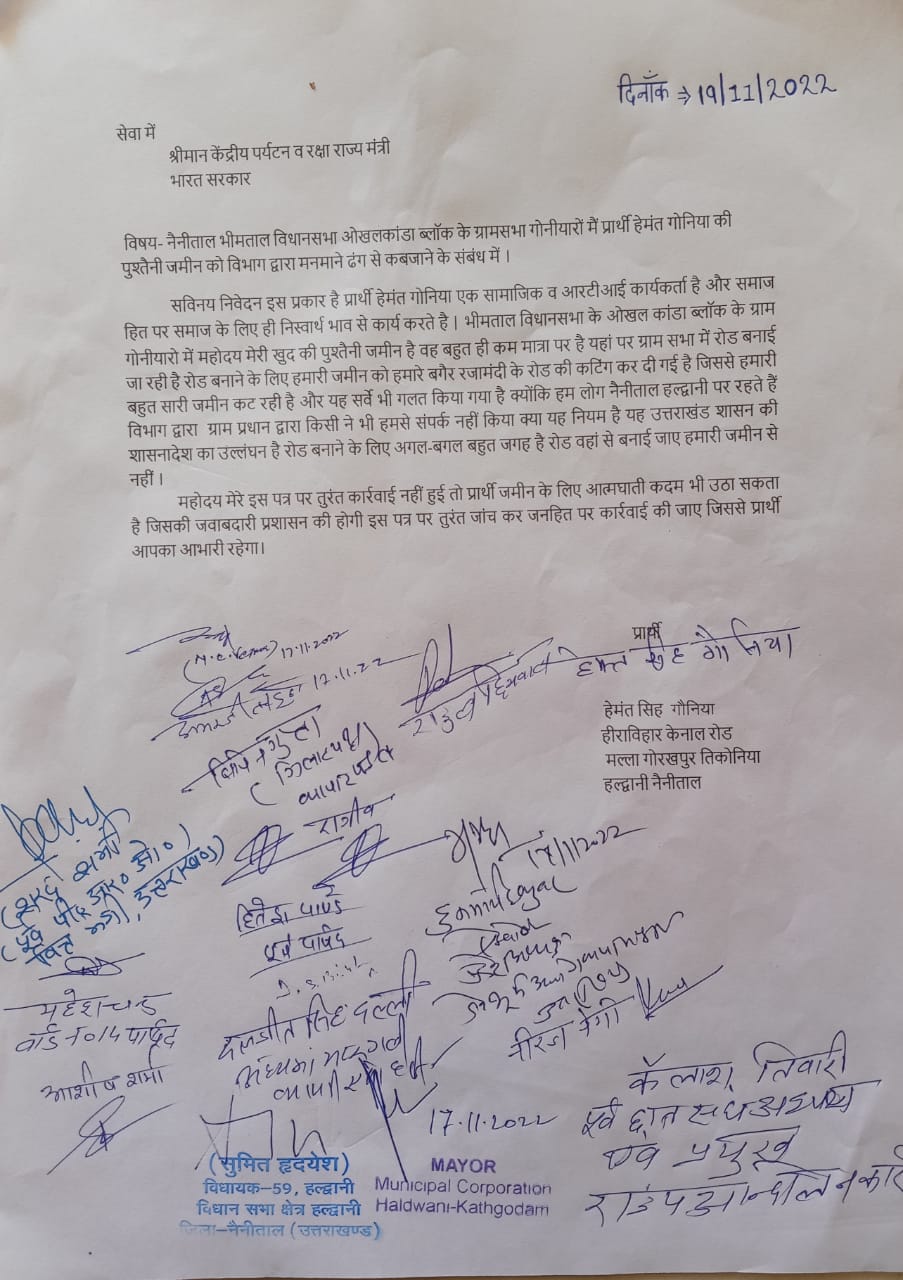 दिनाँक → 19/11/2022
सेवा में
श्रीमान केंद्रीय पर्यटन व रक्षा राज्य मंत्री
भारत सरकार
विषय- नैनीताल भीमताल विधानसभा ओखलकांडा ब्लॉक के ग्रामसभा गोनीयारों मैं प्रार्थी हेमंत गोनिया की
पुश्तैनी जमीन को विभाग द्वारा मनमाने ढंग से कबजाने के संबंध में ।
सविनय निवेदन इस प्रकार है प्रार्थी हेमंत गोनिया एक सामाजिक व आरटीआई कार्यकर्ता है और समाज
हित पर समाज के लिए ही निस्वार्थ भाव से कार्य करते है । भीमताल विधानसभा के ओखल कांडा ब्लॉक के ग्राम
गोनीयारो में महोदय मेरी खुद की पुश्तैनी जमीन है वह बहुत ही कम मात्रा पर है यहां पर ग्राम सभा में रोड बनाई
जा रही है रोड बनाने के लिए हमारी जमीन को हमारे बगैर रजामंदी के रोड की कटिंग कर दी गई है जिससे हमारी
बहुत सारी जमीन कट रही है और यह सर्वे भी गलत किया गया है क्योंकि हम लोग नैनीताल हल्द्वानी पर रहते हैं
विभाग द्वारा ग्राम प्रधान द्वारा किसी ने भी हमसे संपर्क नहीं किया क्या यह नियम है यह उत्तराखंड शासन की
शासनादेश का उल्लंघन है रोड बनाने के लिए अगल-बगल बहुत जगह है रोड वहां से बनाई जाए हमारी जमीन से
नहीं ।
महोदय मेरे इस पत्र पर तुरंत कार्रवाई नहीं हुई तो प्रार्थी जमीन के लिए आत्मघाती कदम भी उठा सकता
है जिसकी जवाबदारी प्रशासन की होगी इस पत्र पर तुरंत जांच कर जनहित पर कार्रवाई की जाए जिससे प्रार्थी
आपका आभारी रहेगा।
प्रार्थी
17.11.2022
17.11.22
हेमंत सिंह गौनिया
हीराविहार केनाल रोड
मल्ला गोरखपुर तिकोनिया
हल्द्वानी नैनीताल
विपिन गुप्ता
राजीव
17/11/2022
हितेश पाण्डे
पूर्व पार्षद
महेश चन्द्र
वार्ड न0 14 पार्षद
आशीष शर्मा
नीरज नेगी
कैलाश तिवारी
17.11.2022
(सुमित हृदयेश)
विधायक-59, हल्द्वानी
विधान सभा क्षेत्र हल्द्वानी
जिला-नैनीताल (उत्तराखण्ड)
MAYOR
Municipal Corporation
Haldwani-Kathgodam